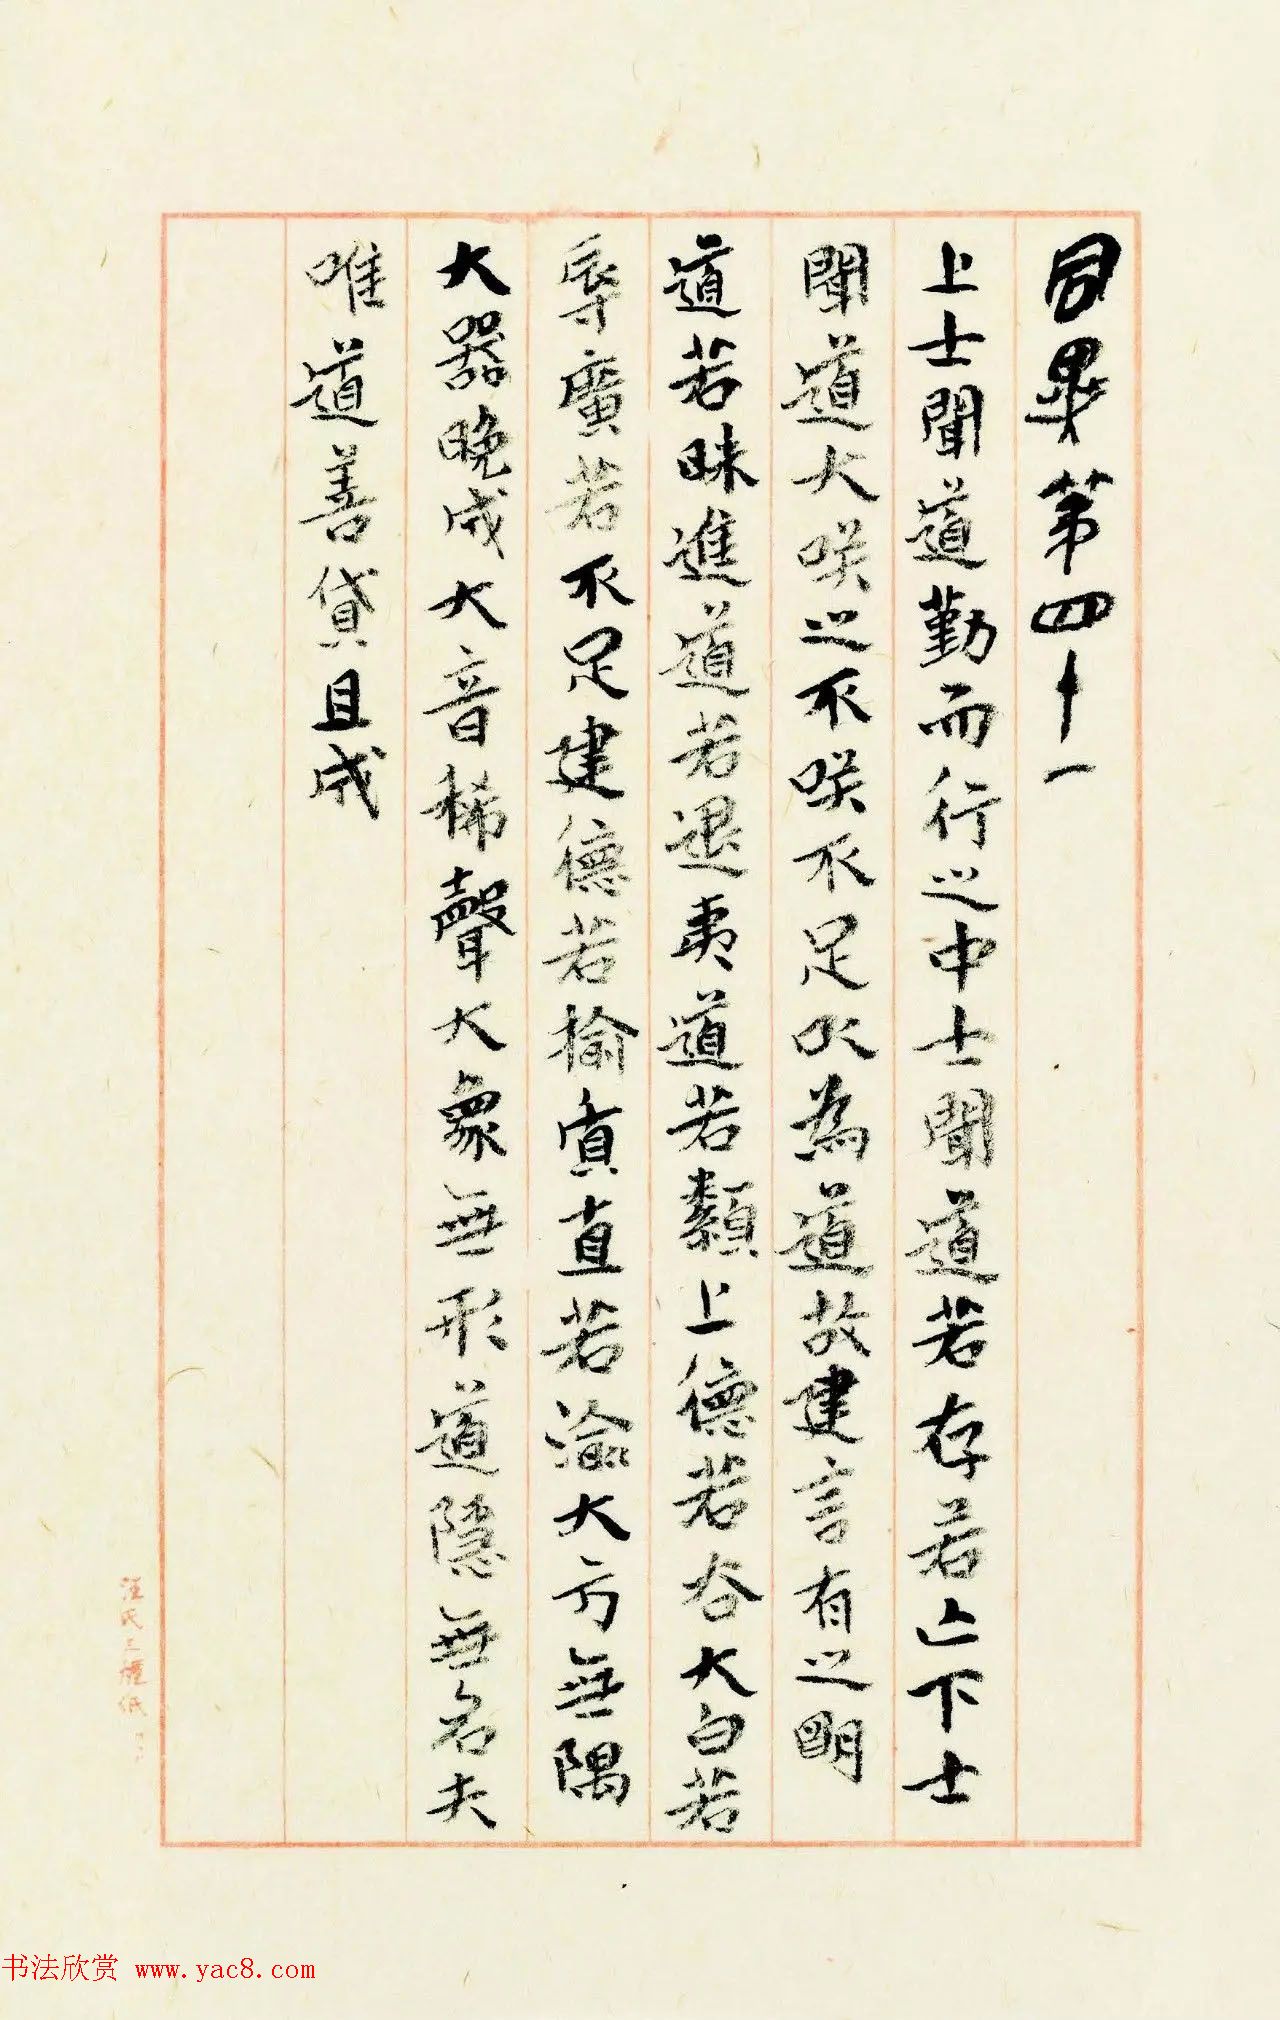 同異第四十一
上士聞道勤而行之中士聞道若存若亡下士
聞道大咲之不咲不足以為道故建言有之明
道若昧進道若退夷道若纇上德若谷大白若
辱廣若不足建德若揄質直若渝大方無隅
大器晚成大音稀聲大象無形道隱無名夫
唯道善貸且成
汪氏三種紙
书法欣赏 www.yac8.com